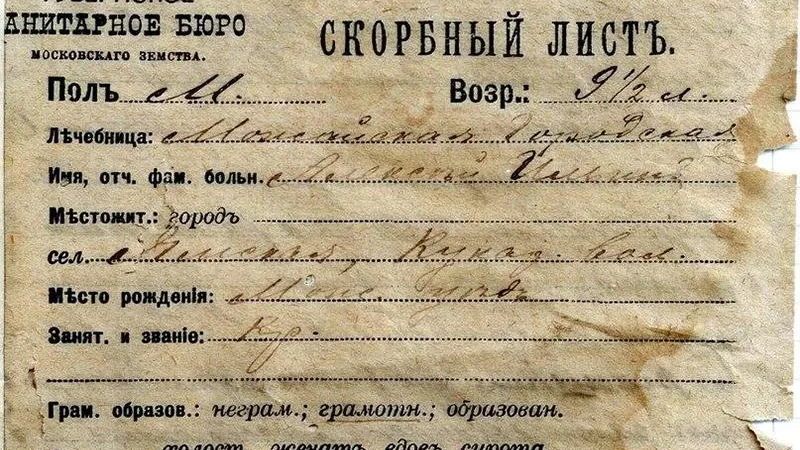 АНИТАРНОЕ БЮРО
МОСКОВСКАГО ЗЕМСТВА.
СКОРБНЫЙ ЛИСТЪ.
Полъ М. Возр.: 9 1/2 л.
Лѣчебница: Можайская Городская
Имя, отч. фам. больн. Алексѣй Ильинъ
Мѣстожит.: городъ
сел. Ямская, Кукар. вол.
Мѣсто рожденія: Мож. уѣздъ
Занят. и званіе: Кр.
Грам. образов.: неграм.; грамотн.; образован.
холост. женатъ вдовъ сирота